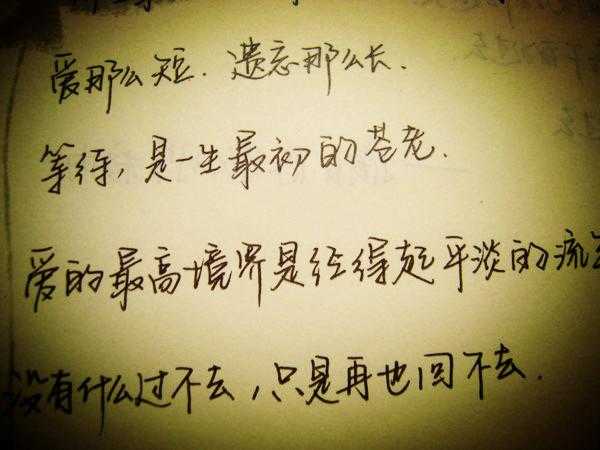 爱那么短.遗忘那么长.
等待,是一生最初的苍老.
爱的最高境界是经得起平淡的流
没有什么过不去,只是再也回不去.